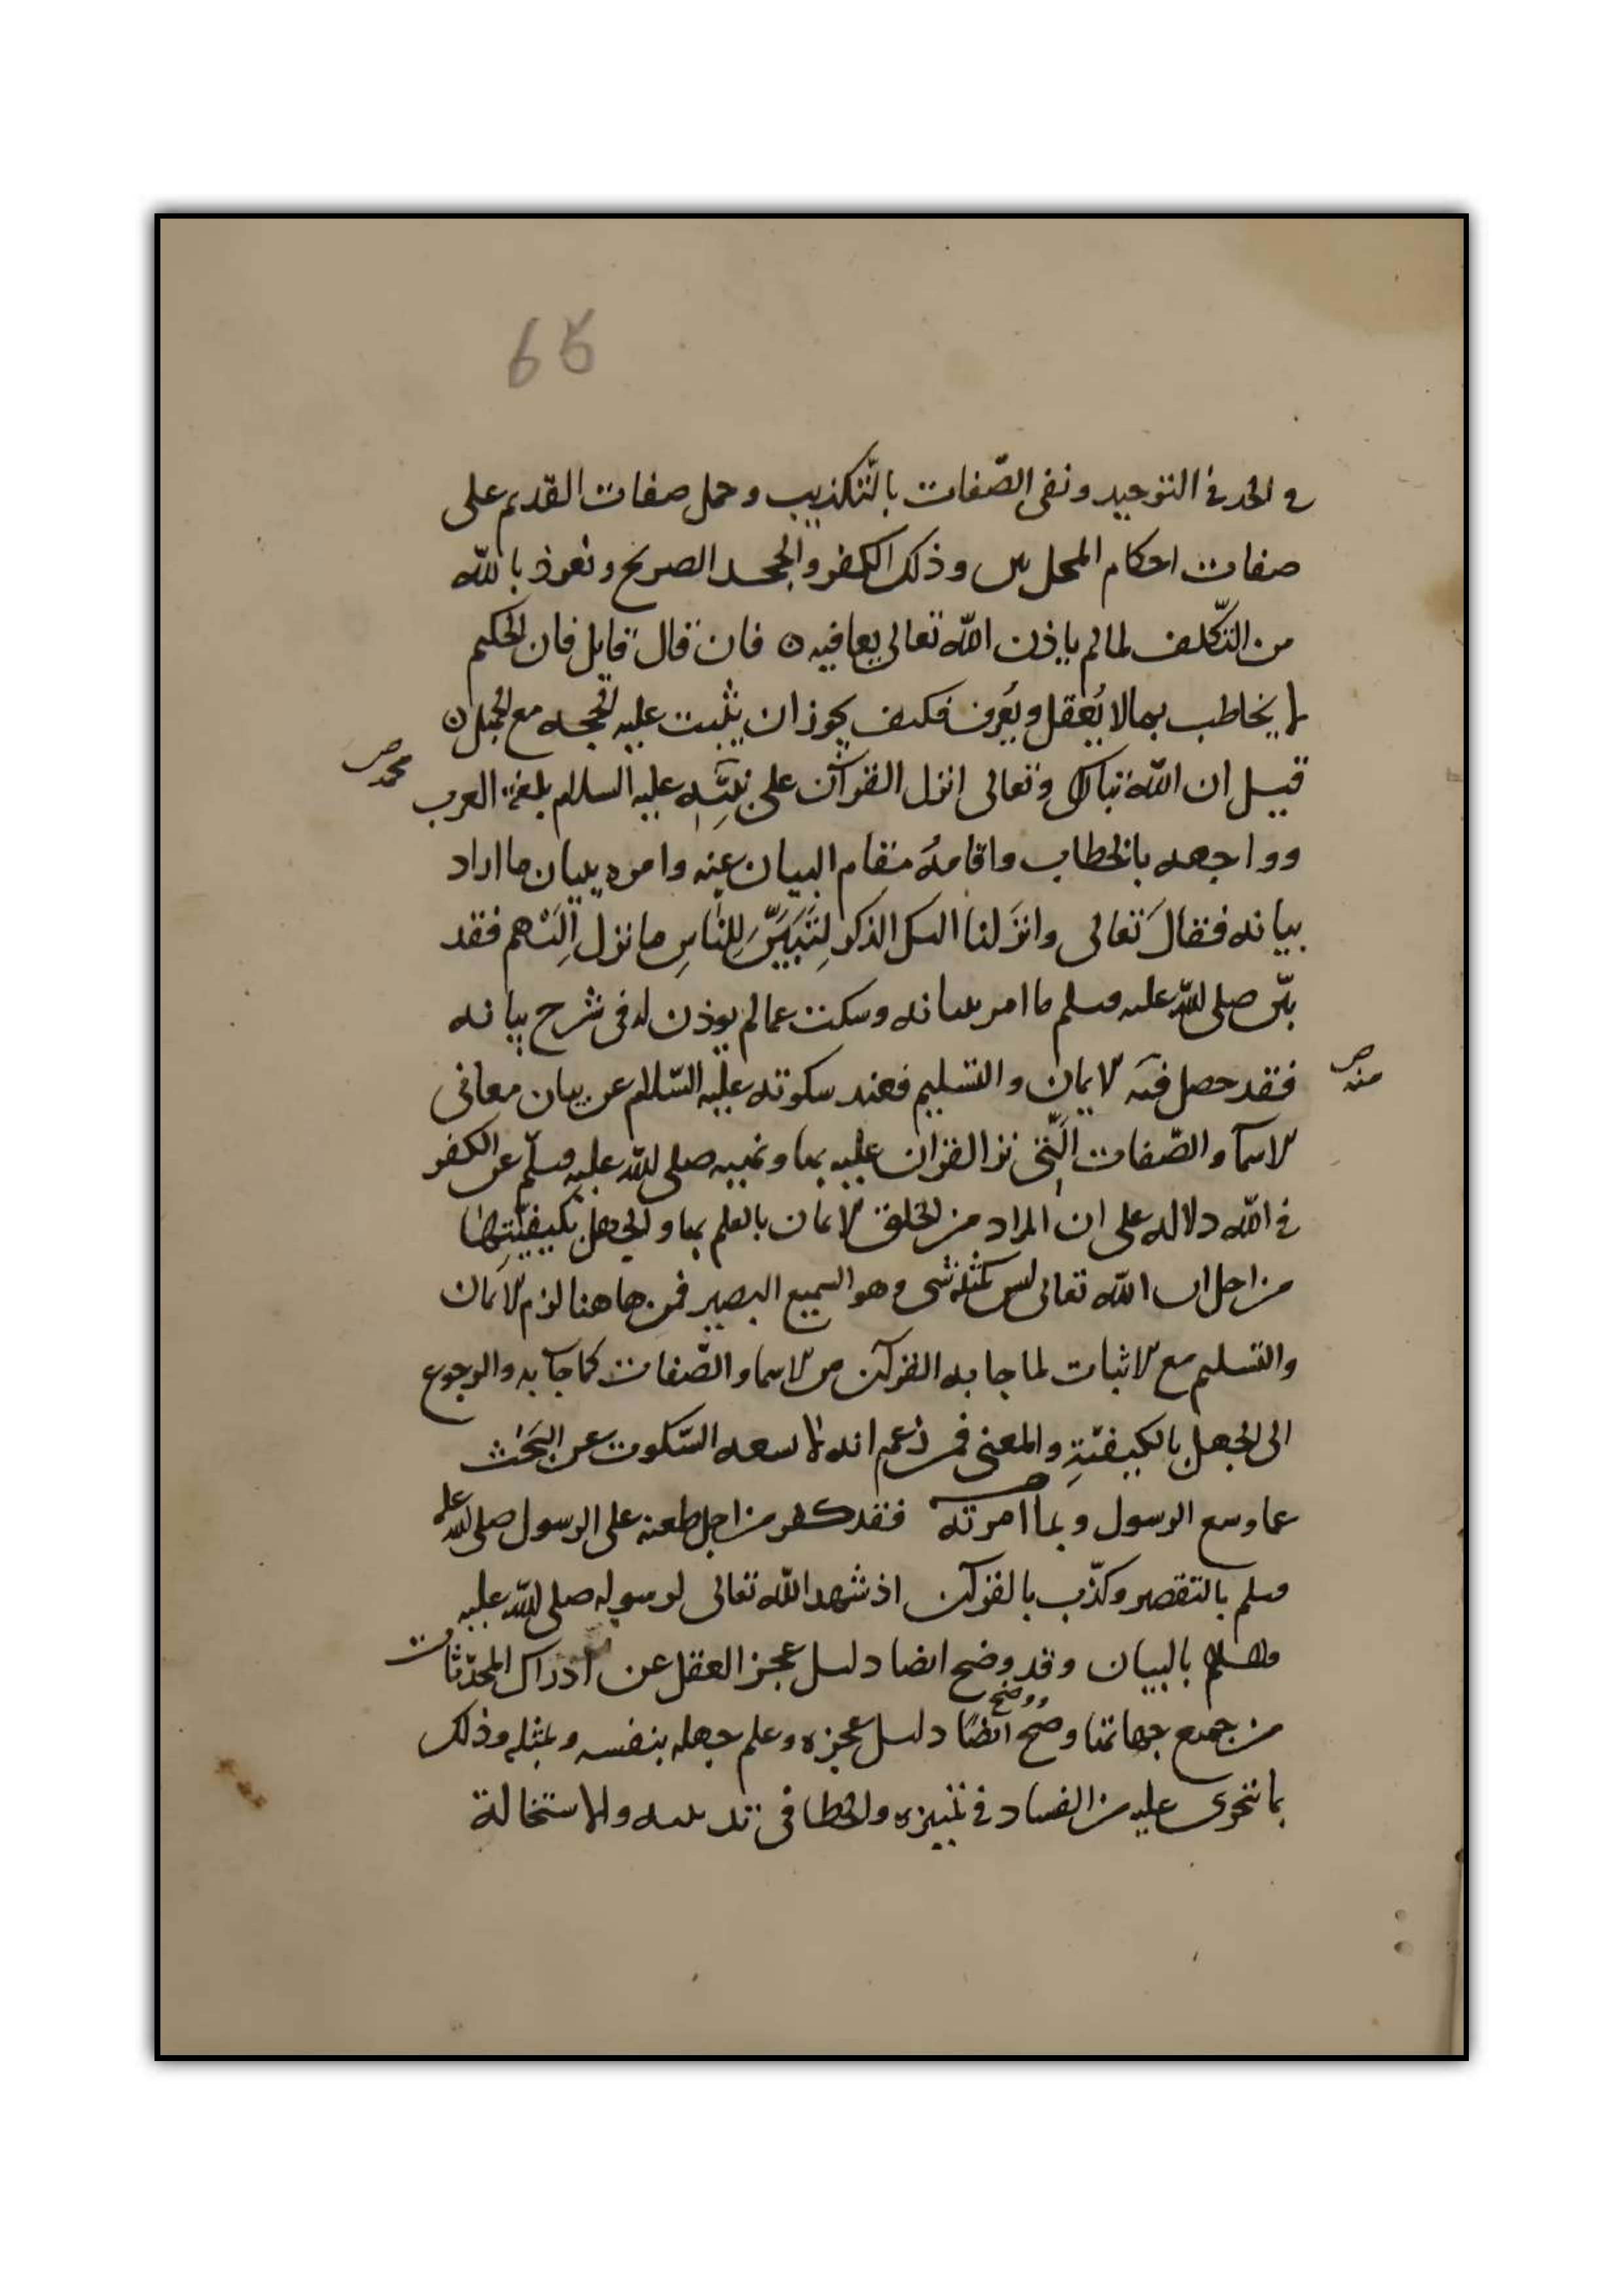 66
و الحد في التوحيد ونفى الصّفات بالتّكذيب وحمل صفات القديم على
صفات احكام المحدثين وذلك الكفر والجحد الصريح ونعوذ بالله
من التكلف لما لم ياذن الله تعالى بها فيه ن فان قال قايل فان الحكيم
لا يخاطب بما لا يُعقل ويُعرف فكيف يجوز ان يثبت عليه الحجه مع الجهل ن
قيل ان الله تبارك وتعالى انزل القرآن على نبيّه عليه السلام بلغة العرب
محمد صح
وواجهه بالخطاب واقامهُ مقام البيان عنه وامره ببيان ما اراد
بيانه فقال تعالى وانزلنا اليك الذكر لِتُبَيِّنَ لِلنَّاسِ ما نزل اِلَيْهم فقد
بيّن صلى الله عليه وسلم ما امر ببيانه وسكت عما لم يوذن له في شرح بيانه
فقد حصل فيه الايمان والتسليم فعند سكوته عليه السّلام عن بيان معانى
منه صح
الاسمآ والصّفات الّتى نزل القران عليه بها ونهيه صلى الله عليه وسلّم عن الكفر
في الله دلاله على ان المراد من الخلق الايمان بالعلم بها والجهل بكيفيّتِها
من اجل ان الله تعالى ليس كمثله شى وهو السميع البصير فمن هاهنا لزم الايمان
والتسليم مع الاثبات لما جا به القرآن من الاسما والصّفات كما جآ به والرجوع
الى الجهل بالكيفيّةِ والمعنى فمن زعم انه لا يسعه السّكوت عن البَحْث
عما وسع الرسول وبما امرته فقد كفر من اجل طعنه على الرسول صلى الله عليه
وسلم بالتقصير وكذّب بالقرآن اذ شهد الله تعالى لرسوله صلى الله عليه
وسلم بالبيان وقد وضح ايضا دليل عجز العقل عن ادراك المحدثات
من جميع جهاتها وصحّ ايضًا دليل عجزه وعلم جهله بنفسه وبمثله وذلك
ووضح
بما تجرى عليه من الفساد في تمييزه والخطا فى تدبيره والاستحالة